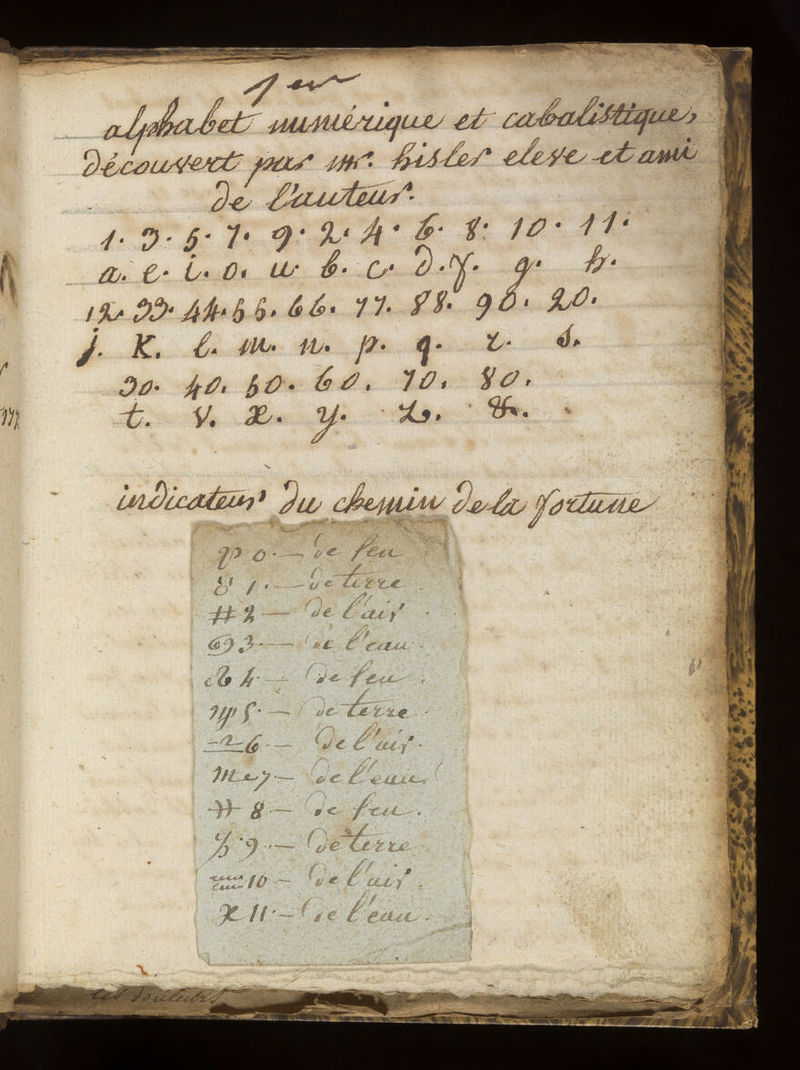 1er
alphabet numérique et cabalistique,
Découvert par mr. hisler eleve et ami
De l'auteur.
1. 3. 5. 7. 9. 2. 4. 6. 8. 10. 11.
a. e. i. o. u. b. c. d. f. g. h.
12. 33. 44. 55. 66. 77. 88. 90. 20.
j. K. l. m. n. p. q. r. s.
30. 40. 50. 60. 70. 80.
t. v. x. y. z. &.
indicateur Du chemin De la fortune
♈ 0. — de feu
♉ 1. — de terre
♊ 2 — de l'air
♋ 3. — de l'eau
♌ 4 — de feu
♍ 5. — de terre
♎ 6 — De l'air.
♏ 7 — de l'eau
♐ 8 — de feu.
♑ 9. — de terre
♒ 10 — de l'air.
♓ 11. — de l'eau.
les douleurs